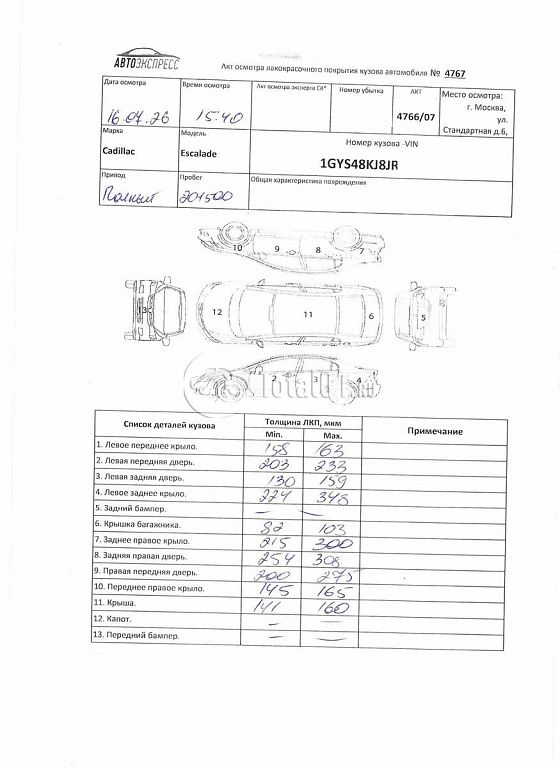 АВТОЭКСПРЕСС
Акт осмотра лакокрасочного покрытия кузова автомобиля № 4767
Дата осмотра
Время осмотра
Акт осмотра эксперта СК*
Номер убытка
АКТ
Место осмотра:
г. Москва,
ул.
Стандартная д.6,
16.07.26
15:40
4766/07
Марка
Модель
Номер кузова -VIN
Cadillac
Escalade
1GYS48KJ8JR
Привод
Пробег
Общая характеристика повреждений
Полный
201500
10 9 8 7
3 12 11 6 5
1 2 3 4
Total01.ru
Список деталей кузова
Толщина ЛКП, мкм
Примечание
Min. Max.
1. Левое переднее крыло. 158 163
2. Левая передняя дверь. 203 233
3. Левая задняя дверь. 130 159
4. Левое заднее крыло. 224 348
5. Задний бампер. – –
6. Крышка багажника. 82 103
7. Заднее правое крыло. 215 300
8. Задняя правая дверь. 254 308
9. Правая передняя дверь. 200 275
10. Переднее правое крыло. 145 165
11. Крыша. 141 160
12. Капот. – –
13. Передний бампер. – –